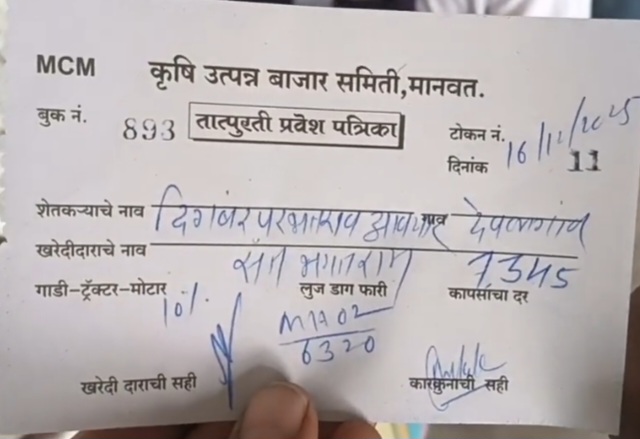 MCM कृषि उत्पन्न बाजार समिती,मानवत.
बुक नं. 893 तात्पुरती प्रवेश पत्रिका टोकन नं. 11
दिनांक 16/12/2025
शेतकऱ्याचे नाव दिगांबर परभतराव गाव देवलगांव
खरेदीदाराचे नाव संत भगतराम 7345
गाडी-ट्रॅक्टर-मोटार लुज डाग फारी कापसाचा दर
10%
M1702
6320
खरेदी दाराची सही कारकुनाची सही